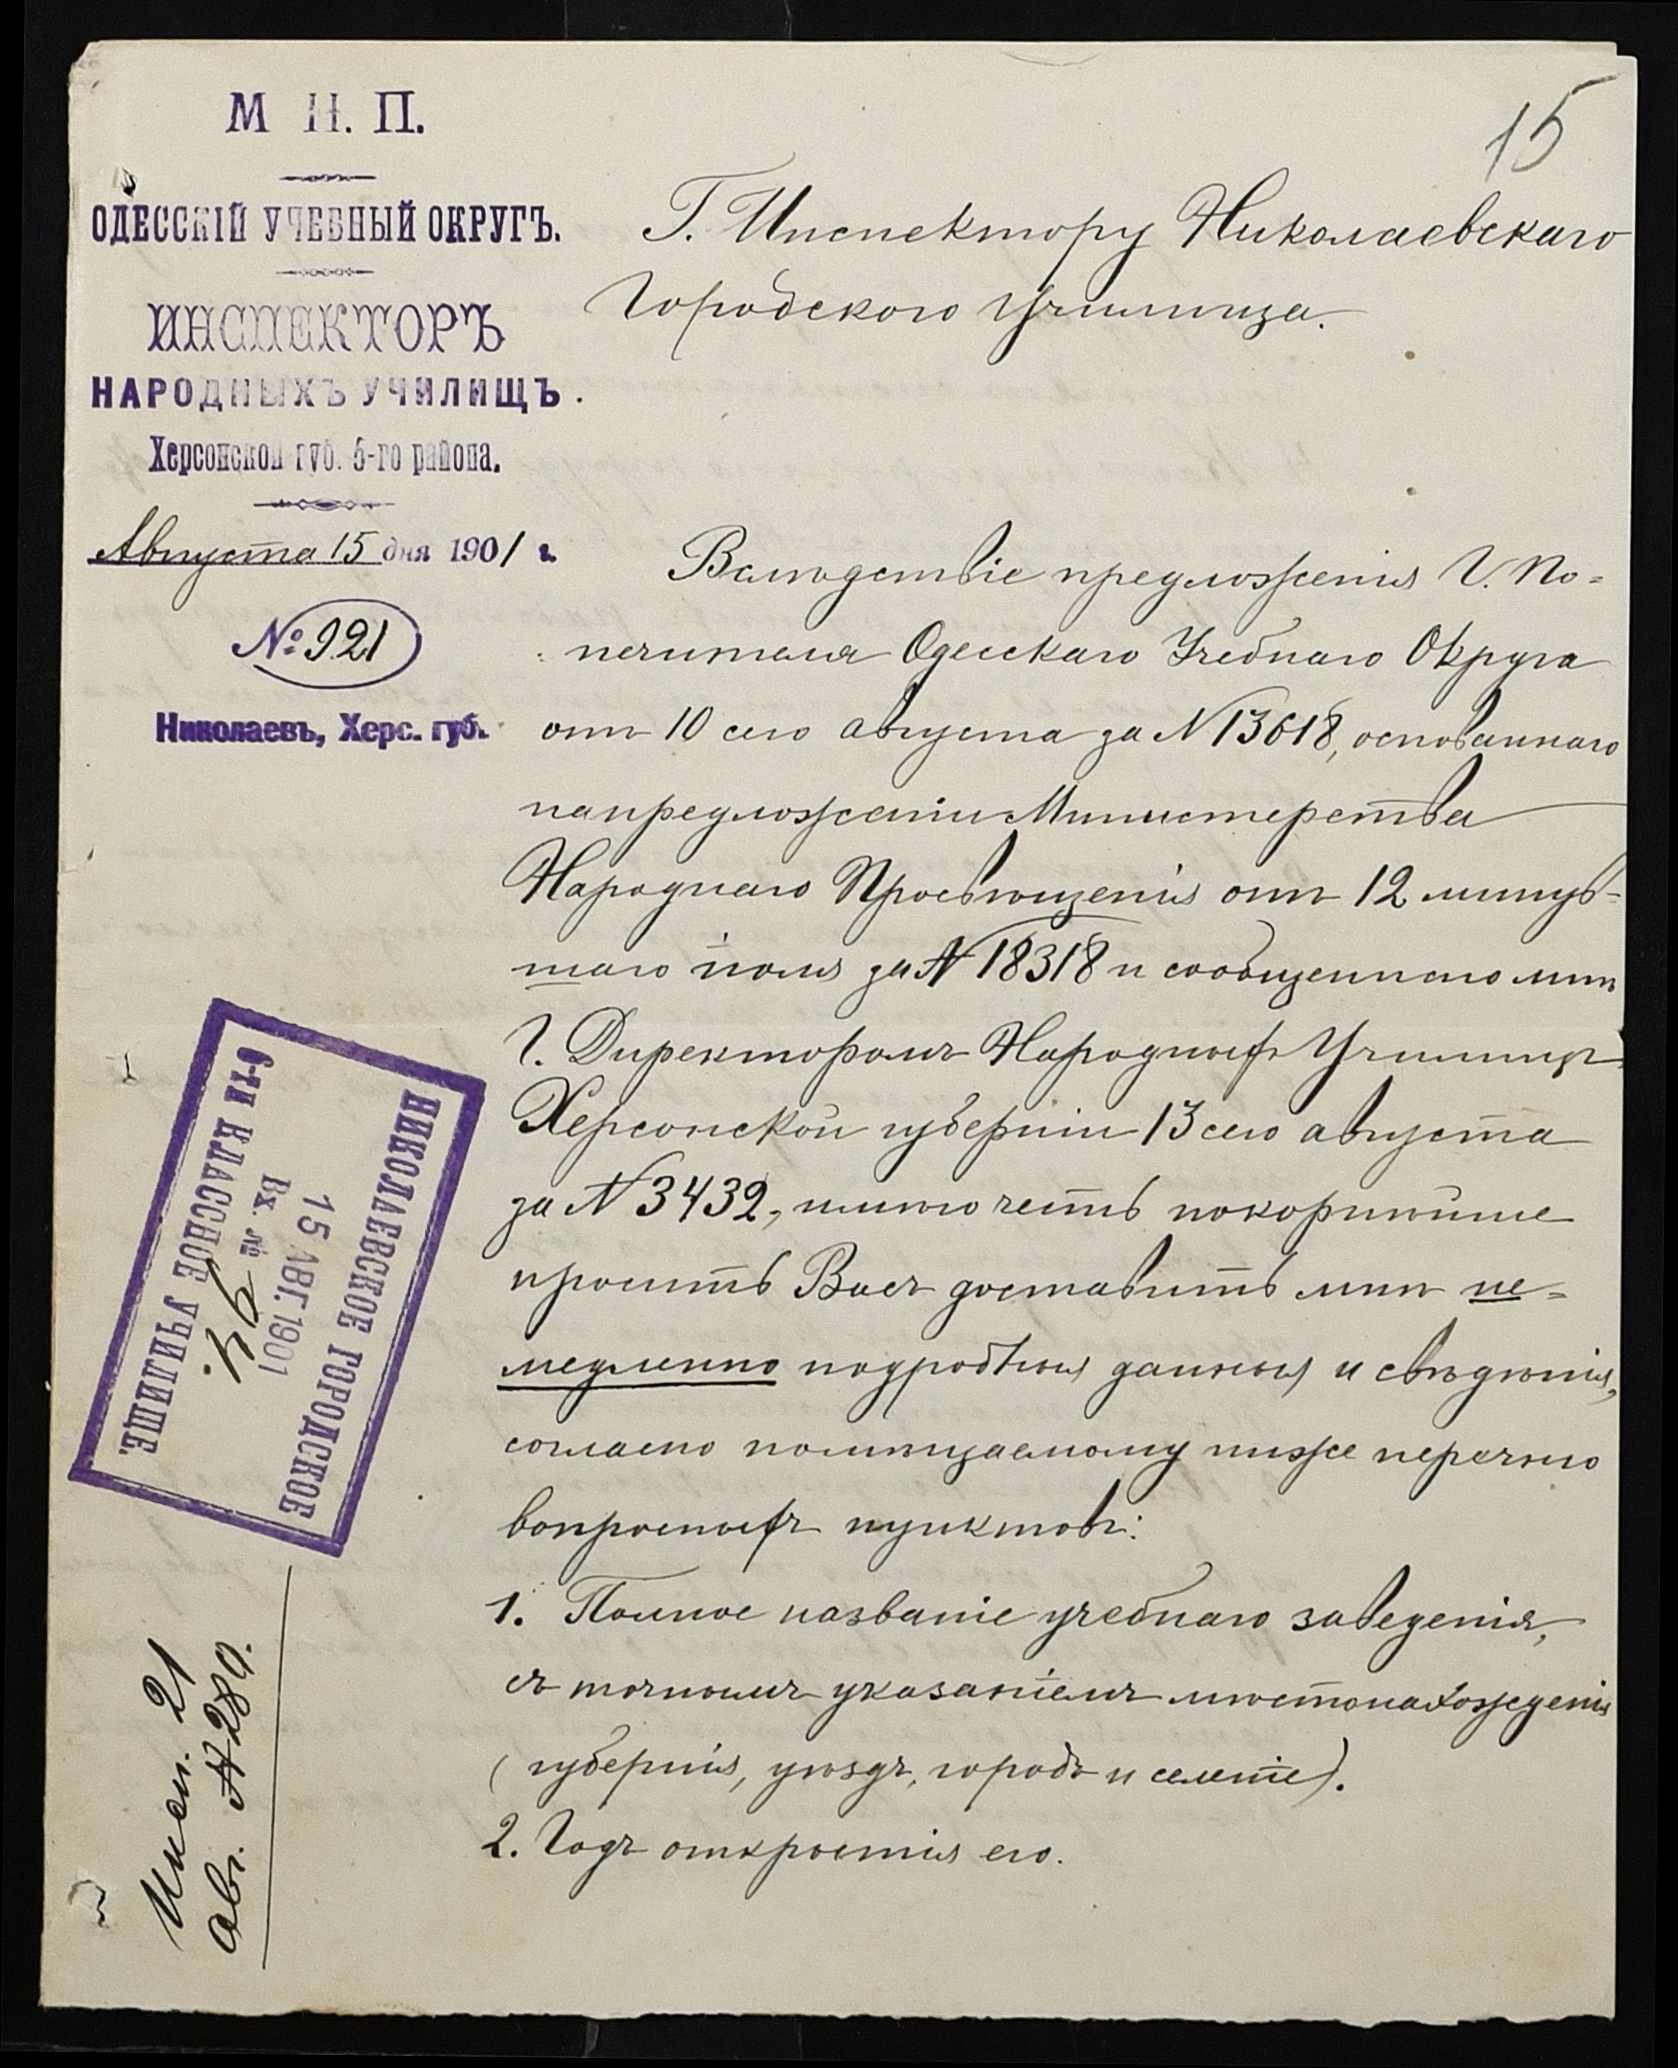 15
М. Н. П.
ОДЕССКІЙ УЧЕБНЫЙ ОКРУГЪ.
ИНСПЕКТОРЪ
НАРОДНЫХЪ УЧИЛИЩЪ.
Херсонской губ. 5-го района.
Августа 15 дня 1901 г.
№ 921
Николаевъ, Херс. губ.
Г. Инспектору Николаевскаго
Городского Училища.
Вслѣдствіе предложенія Г. По=
печителя Одесскаго Учебнаго Округа
отъ 10 сего августа за № 13618, основаннаго
на предложеніи Министерства
Народнаго Просвѣщенія отъ 12 минув-
шаго іюля за № 18318 и сообщеннаго мнѣ
Г. Директоромъ Народныхъ Училищъ
Херсонской губерніи 13 сего августа
за № 3432, имѣю честь покорнѣйше
просить Васъ доставить мнѣ не=
медленно подробныя данныя и свѣдѣнія,
согласно помѣщаемому ниже перечню
вопросныхъ пунктовъ:
1. Полное названіе учебнаго заведенія,
съ точнымъ указаніемъ мѣстонахожденія
(губернія, уѣздъ, городъ и селеніе).
2. Годъ открытія его.
НИКОЛАЕВСКОЕ ГОРОДСКОЕ
15 АВГ. 1901
Вх. № 94.
6-ТИ КЛАССНОЕ УЧИЛИЩЕ.
Исп. 21
авг. № 289.